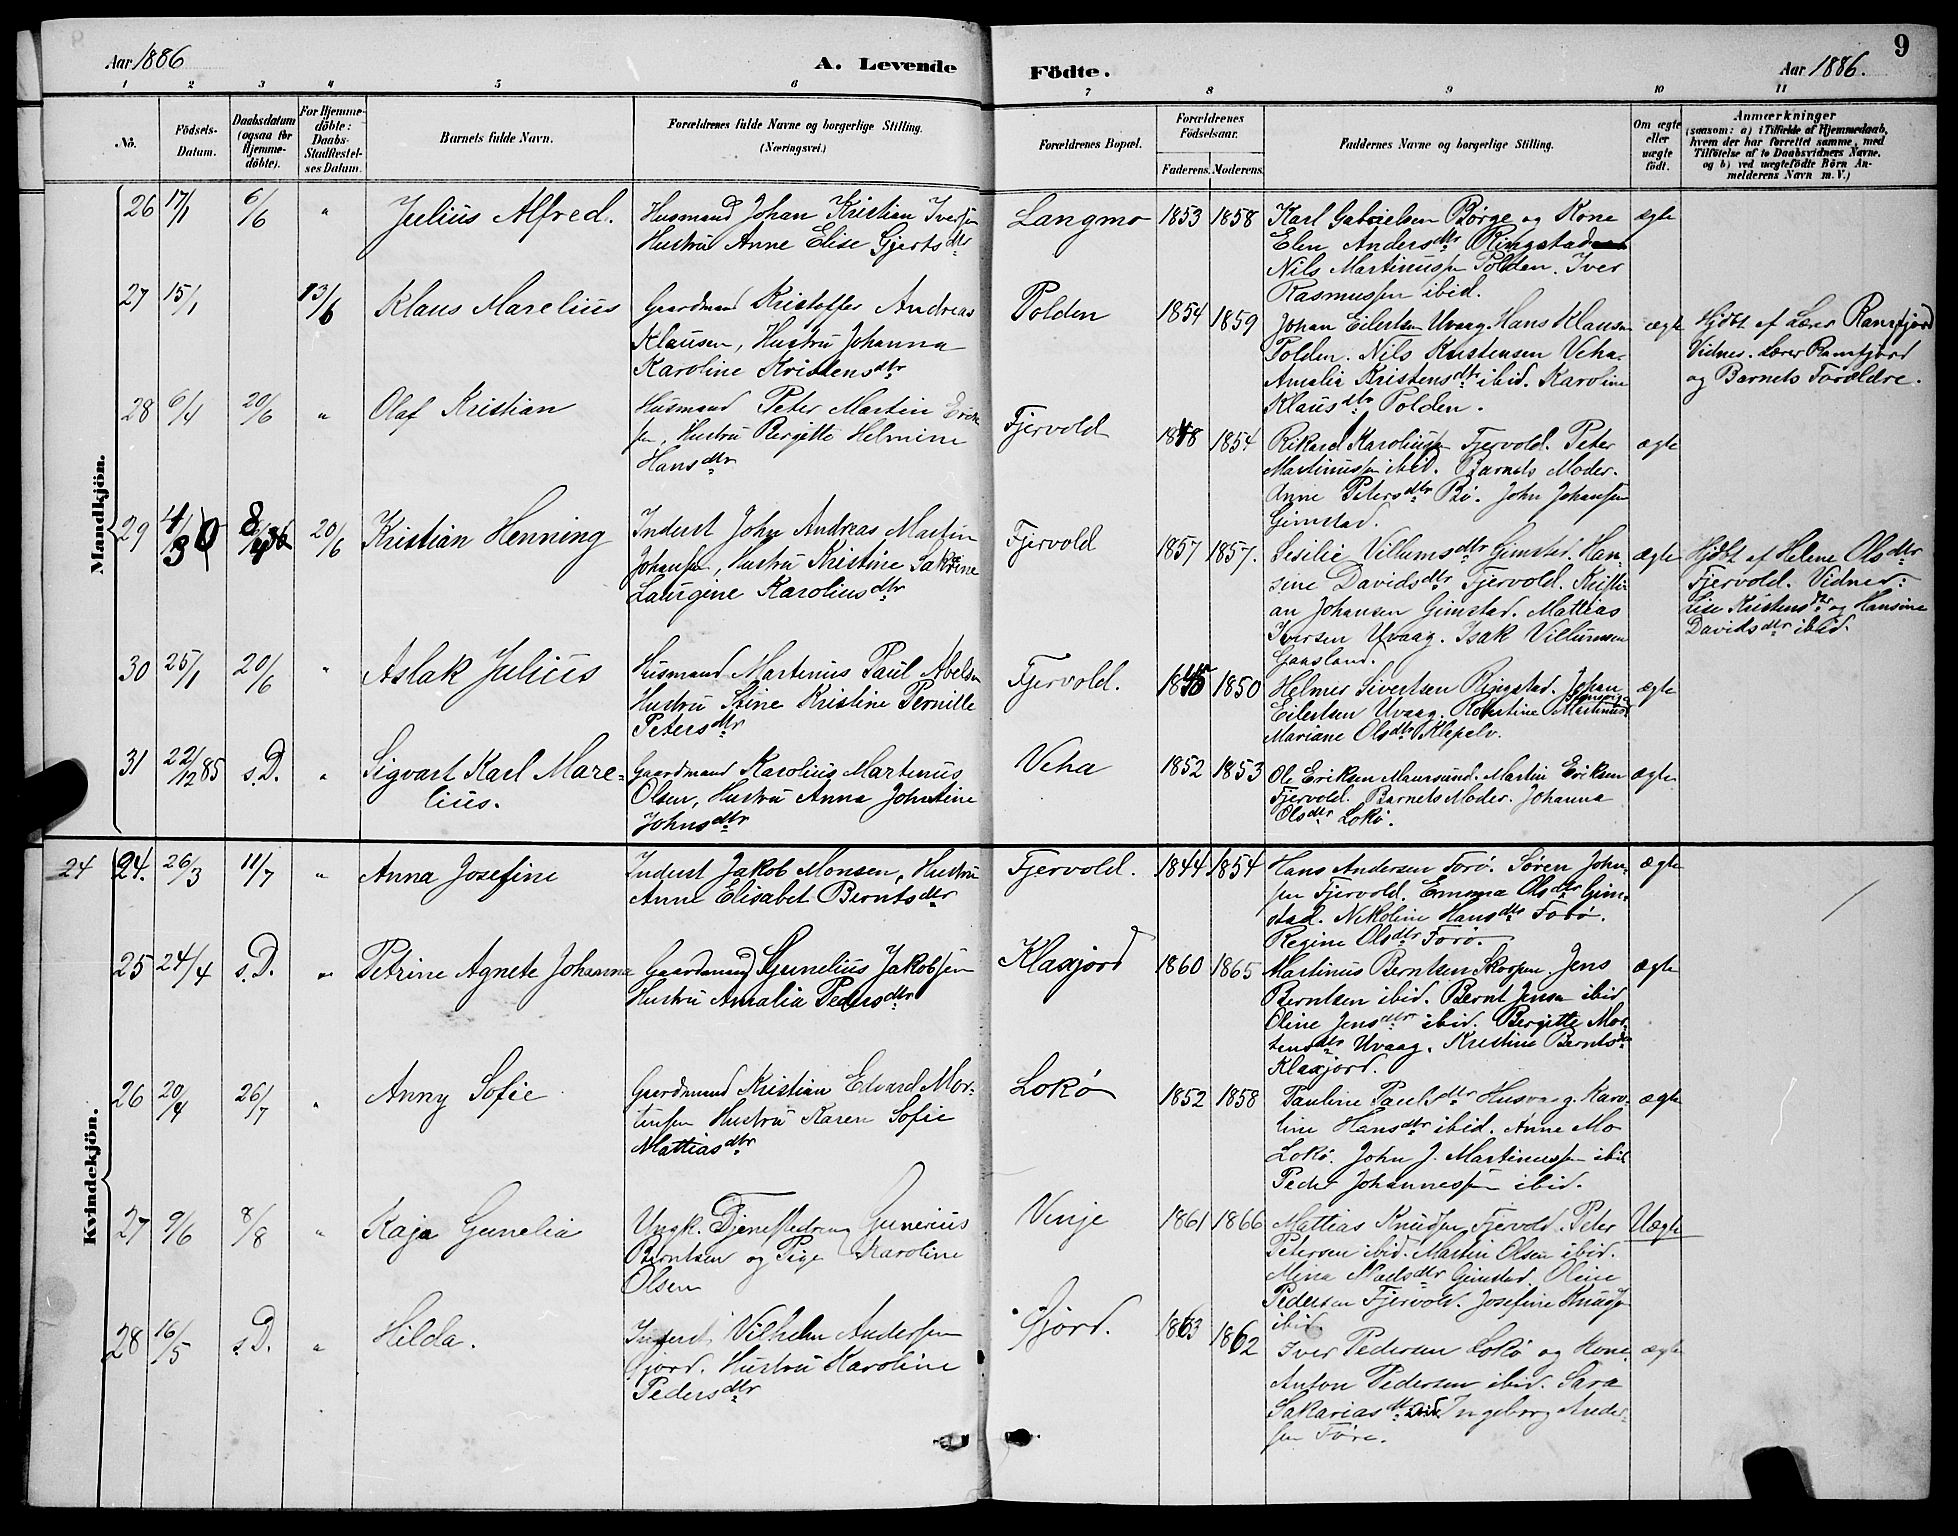 9
Aar 1886
A. Levende
Födte.
Aar 1886.
1 2 3 4 5 6 7 8 9 10 11
No.
Födsels-Datum.
Daabsdatum (ogsaa for Hjemme-döbte).
For Hjemme-döbte: Daabs-Stadfæstel-ses Datum.
Barnets fulde Navn.
Forældrenes fulde Navne og borgerlige Stilling. (Næringsvei.)
Forældrenes Bopæl.
Forældrenes Födselsaar.
Faderens. Moderens.
Faddernes Navne og borgerlige Stilling.
Om ægte eller uægte födt.
Anmærkninger
(saasom: a) i Tilfælde af Hjemmedaab, hvem der har forrettet samme, med Tilföielse af to Daabsvidners Navne, og b) ved uægtefödte Börn An-melderens Navn m. V.)
Mandkjön.
26 17/1 6/6 " Julius Alfred.
Husmand Johan Kristian Iversen
Hustru Anne Elise Gjertsdtr
Langmo 1853 1858
Karl Gabrielsen Börge og Kone
Elen Andersdtr Ringstad
Nils Martinussen Polden. Iver
Rasmussen ibid.
ægte
27 15/1 13/6 Klaus Marelius
Gaardmand Kristoffer Andreas
Klausen, Hustru Johanna
Karoline Kristensdtr
Polden 1854 1859
Johan Eilertsen Uvaag. Hans Klausen
Polden. Nils Kristensen Veha.
Amalia Kristensdtr ibid. Karoline
Klausdtr Polden.
ægte
Hjdbt af Lærer Ramfjord
Vidnes. Lærer Ramfjord
og Barnets Forældre.
28 6/4 20/6 " Olaf Kristian
Husmand Peter Martin Erik
sen, Hustru Bergitte Helmine
Hansdtr
Fjervold 1848 1854
Rikard Karoliussen Fjervold. Peter
Martinussen ibid. Barnets Moder.
Anne Petersdtr Bö. John Johansen
Gimstad.
ægte
29 20/6 Kristian Henning
Inderst John Andreas Martin
Johansen, Hustru Kristine Sakrine
Laurgine Karoliusdtr
Fjervold 1857 1857.
Sisilie Villumsdtr Gimstad. Han-
sine Davidsdtr Fjervold. Kristi-
an Johansen Gimstad. Mattias
Iversen Uvaag. Isak Villumsen
Gaasland.
ægte
Hjdbt af Helene Olsdtr
Fjervold. Vidner:
Lise Kristensdtr og Hansine
Davidsdtr ibid.
30 25/1 20/6 " Aslak Julius
Husmand Martinus Paul Abelsen
Hustru Stine Kristine Pernille
Petersdtr
Fjervold. 1850
Helmer Sivertsen Ringstad. Johan
Eilertsen Uvaag. Robertine Martinusd
Mariane Olsdtr Klepelv.
ægte
31 22/12 85 s.D. " Sigvart Karl Mare-
lius.
Gaardmand Karolius Martinus
Olsen, Hustru Anna Johntine
Johnsdtr
Veha 1852 1853
Ole Eriksen Maursund. Martin Eriksen
Fjervold. Barnets Moder. Johanna
Olsdtr Lokö.
ægte
Kvindekjön.
24 24. 26/3 11/7 " Anna Josefine
Inderst Jakob Monsen, Hustru
Anne Elisabet Berntsdtr
Fjervold. 1844 1854
Hans Andersen Forö. Sören John-
sen Fjervold. Emma Olsdtr Gim-
stad. Nikoline Hansdtr Forö.
Regine Olsdtr Forö.
ægte
25 24/4 s.D. " Petrine Agnete Johanna
Gaardmand Gunelius Jakobsen
Hustru Amalia Pedersdtr
Klaxjord 1860 1865
Martinus Berntsen Skogsen. Jens
Berntsen ibid. Bernt Jensen ibid
Oline Jensdtr ibid. Bergitte Mor-
tensdtr Uvaag. Kristine Berntsdtr
Klaxjord.
ægte
26 20/4 26/7 " Anny Sofie
Gaardmand Kristian Edvard Mor-
tensen Hustru Karen Sofie
Mattiasdtr
Lokø 1852 1858
Pauline Paulsdtr Husvaag. Karo-
line Hansdtr ibid. Anne Mo
Lokö. John J. Martinussen ibid
Peder Johannessen ibid.
ægte
27 9/6 8/8 " Kaja Gunelia
Ungk. Tjenestedreng Gunerius
Berntsen og Pige Karoline
Olsen
Vinje 1861 1866
Mattias Knudsen Fjervold. Peter
Petersen ibid. Martin Olsen ibid.
Mina Nielsdtr Gimstad. Oline
Pedersen Fjervold. Josefine Knudsd
ibid.
Uægte
28 16/5 s.D. " Hilda.
Inderst Vilhelm Andersen
Gjord. Hustru Karoline
Pedersdtr
Gjord. 1863 1862
Iver Pedersen Lokö og Kone.
Anton Pedersen ibid. Sara
Sakariasdtr ibid. Ingeborg Ander-
sen Före.
ægte